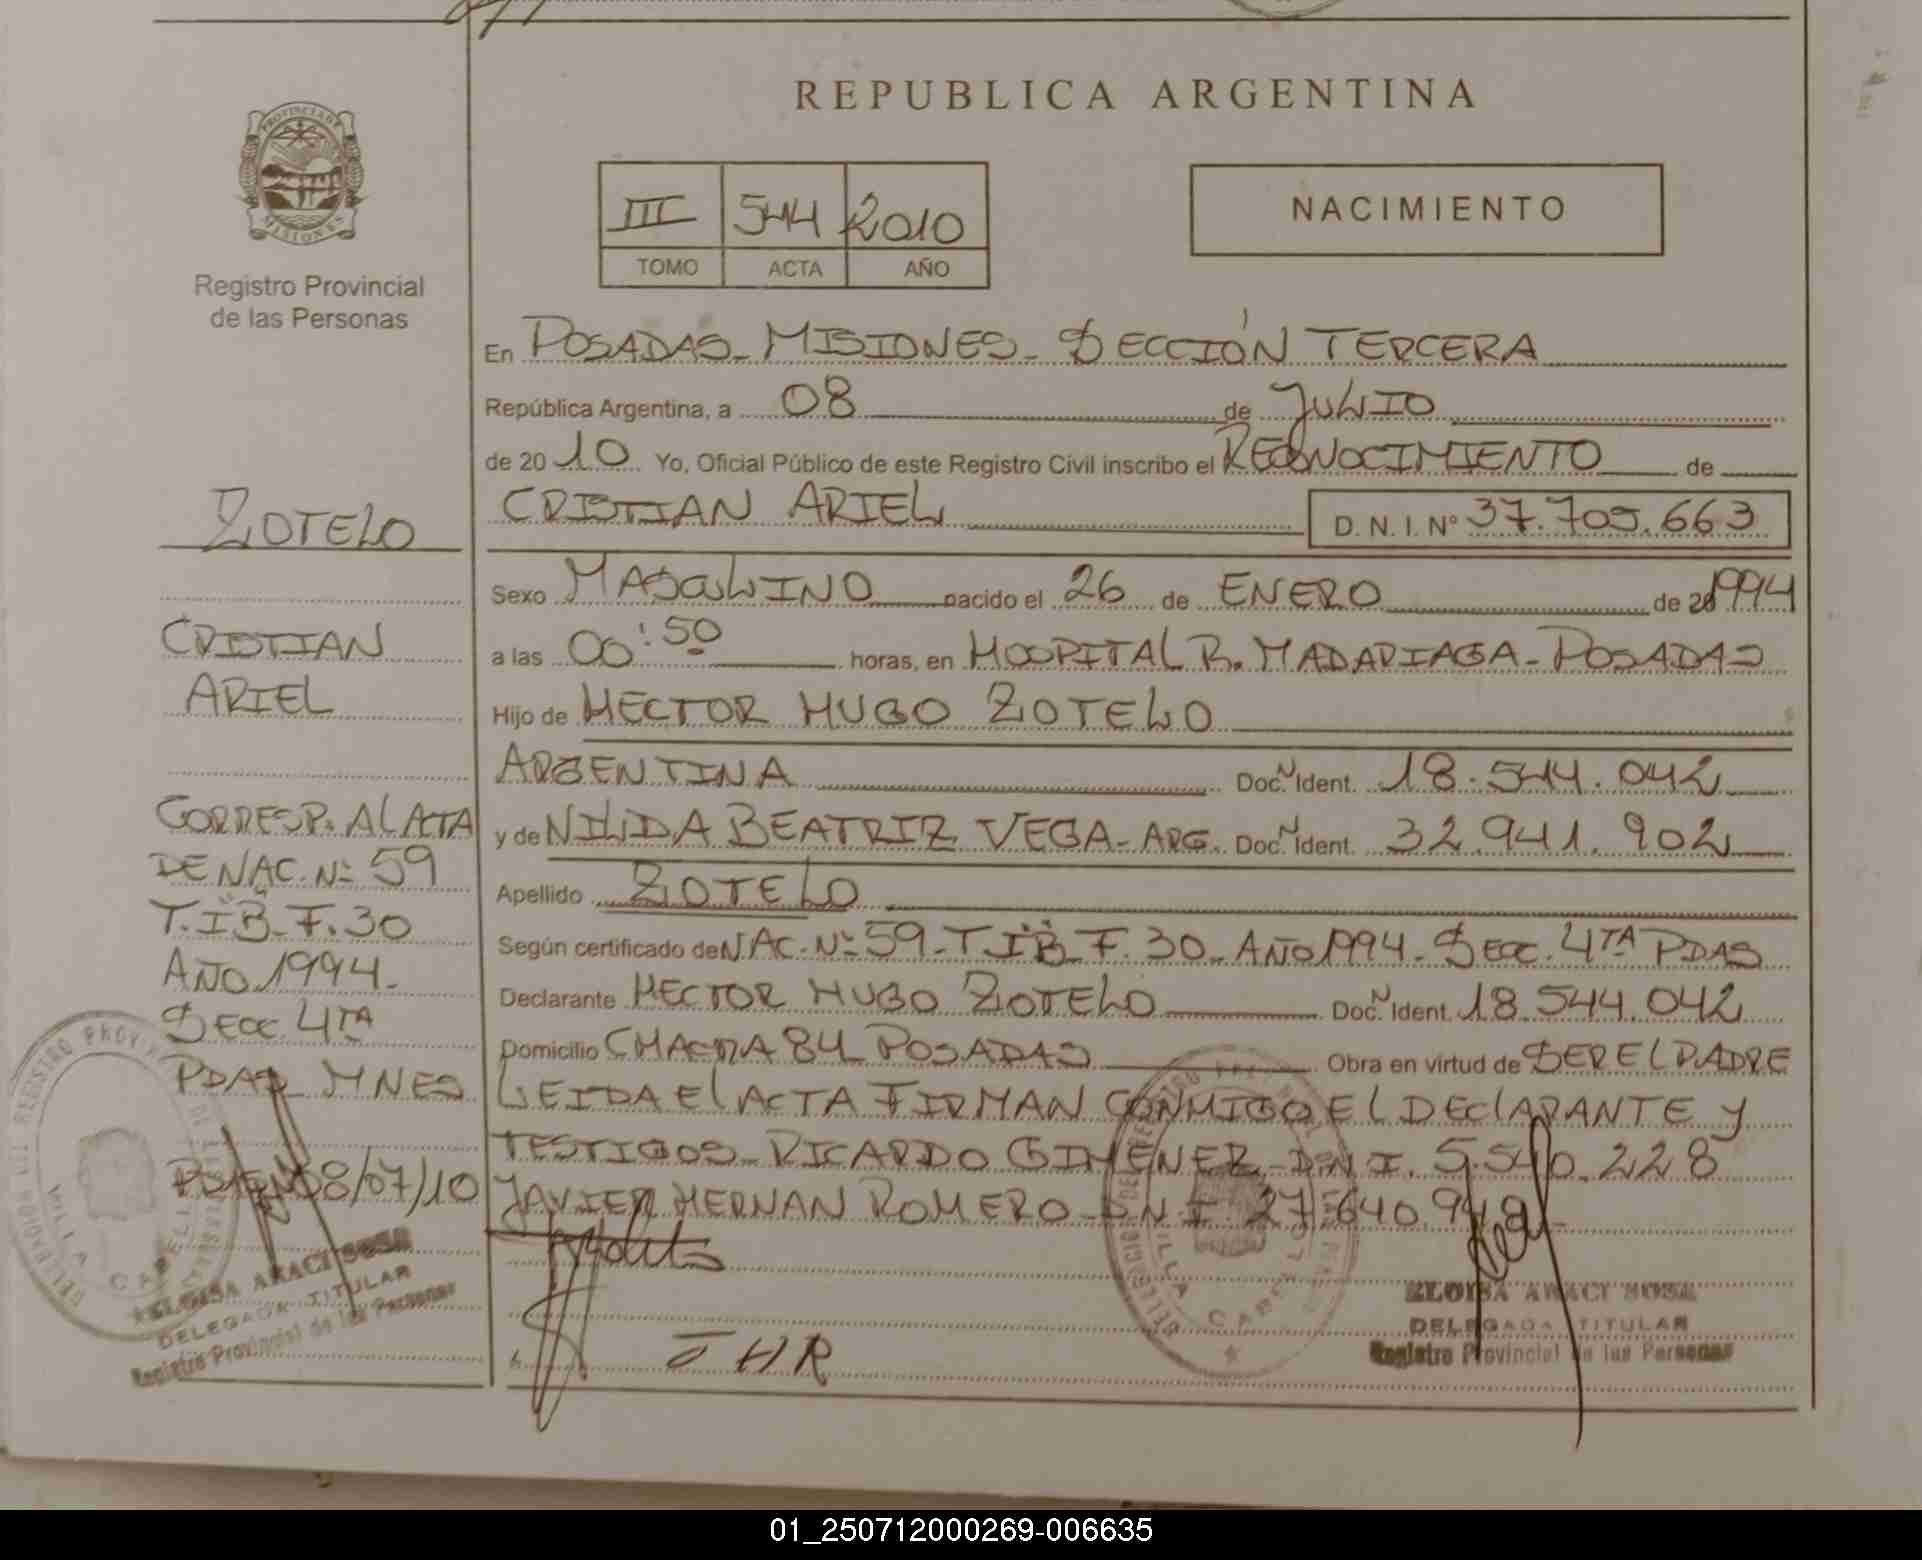 REPUBLICA ARGENTINA
PROVINCIA DE MISIONES
Registro Provincial
de las Personas
III 544 2010
TOMO ACTA AÑO
NACIMIENTO
En POSADAS - MISIONES - SECCIÓN TERCERA
República Argentina, a 08 de JULIO
de 20 10 Yo, Oficial Público de este Registro Civil inscribo el RECONOCIMIENTO de
CRISTIAN ARIEL D.N.I. Nº 37.705.663
Sexo MASCULINO nacido el 26 de ENERO de 20 1994
a las 00:50 horas, en HOSPITAL R. MADARIAGA - POSADAS
Hijo de HECTOR HUGO ZOTELO
ARGENTINA Doc. N Ident. 18.544.042
y de NILIDA BEATRIZ VEGA - ARG. Doc. N Ident. 32.941.902
Apellido ZOTELO
Según certificado de NAC. Nº 59 - T. I "B" F. 30 - AÑO 1994 - SECC. 4TA PDAS
Declarante HECTOR HUGO ZOTELO Doc. N Ident. 18.544.042
Domicilio CHACRA 84 - POSADAS Obra en virtud de SER EL PADRE
LEIDA EL ACTA FIRMAN CONMIGO EL DECLARANTE Y
TESTIGOS - RICARDO GIMENEZ - D.N.I. 5.540.228
JAVIER HERNAN ROMERO - D.N.I. 27.640.948 -
JHR
ELOISA ARACI SOSA
DELEGADA TITULAR
Registro Provincial de las Personas
ZOTELO
CRISTIAN
ARIEL
CORRESP. AL ACTA
DE NAC. Nº 59
T. I "B" - F. 30
AÑO 1994 -
SECC. 4TA
PDAS - MNES
08/07/10
ELOISA ARACI SOSA
DELEGADA TITULAR
Registro Provincial de las Personas
VILLA CABELLO
01_250712000269-006635